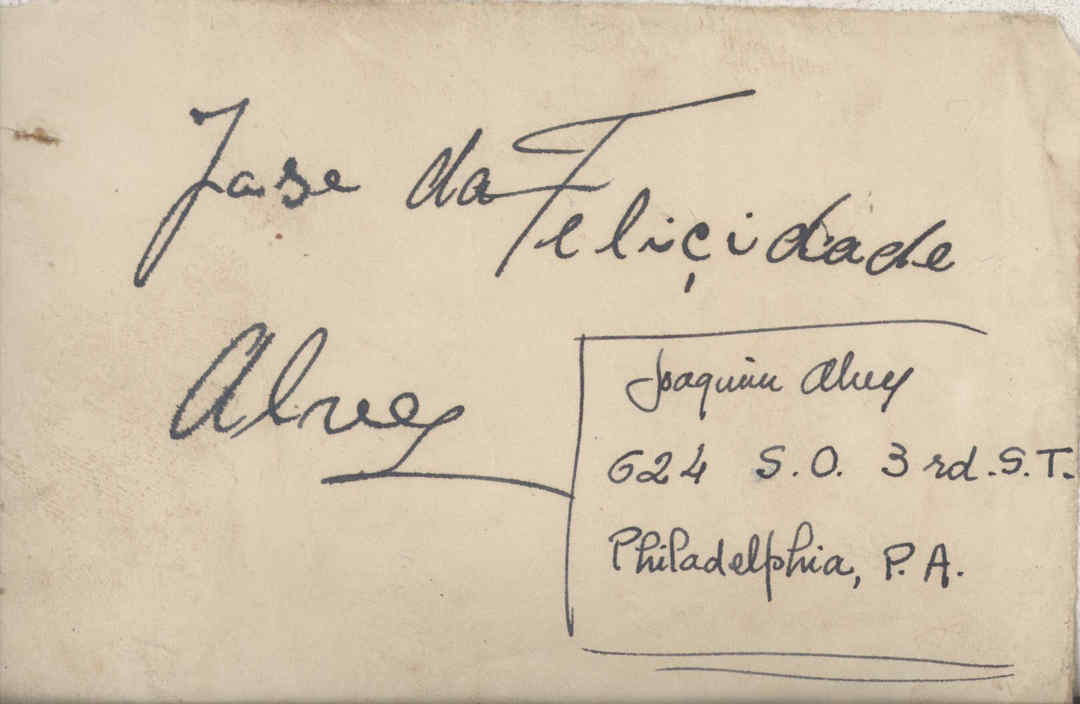 Jose da Feliçidade
Alves
Joaquim Alves
624 S.O. 3rd. S.T.
Philadelphia, P.A.